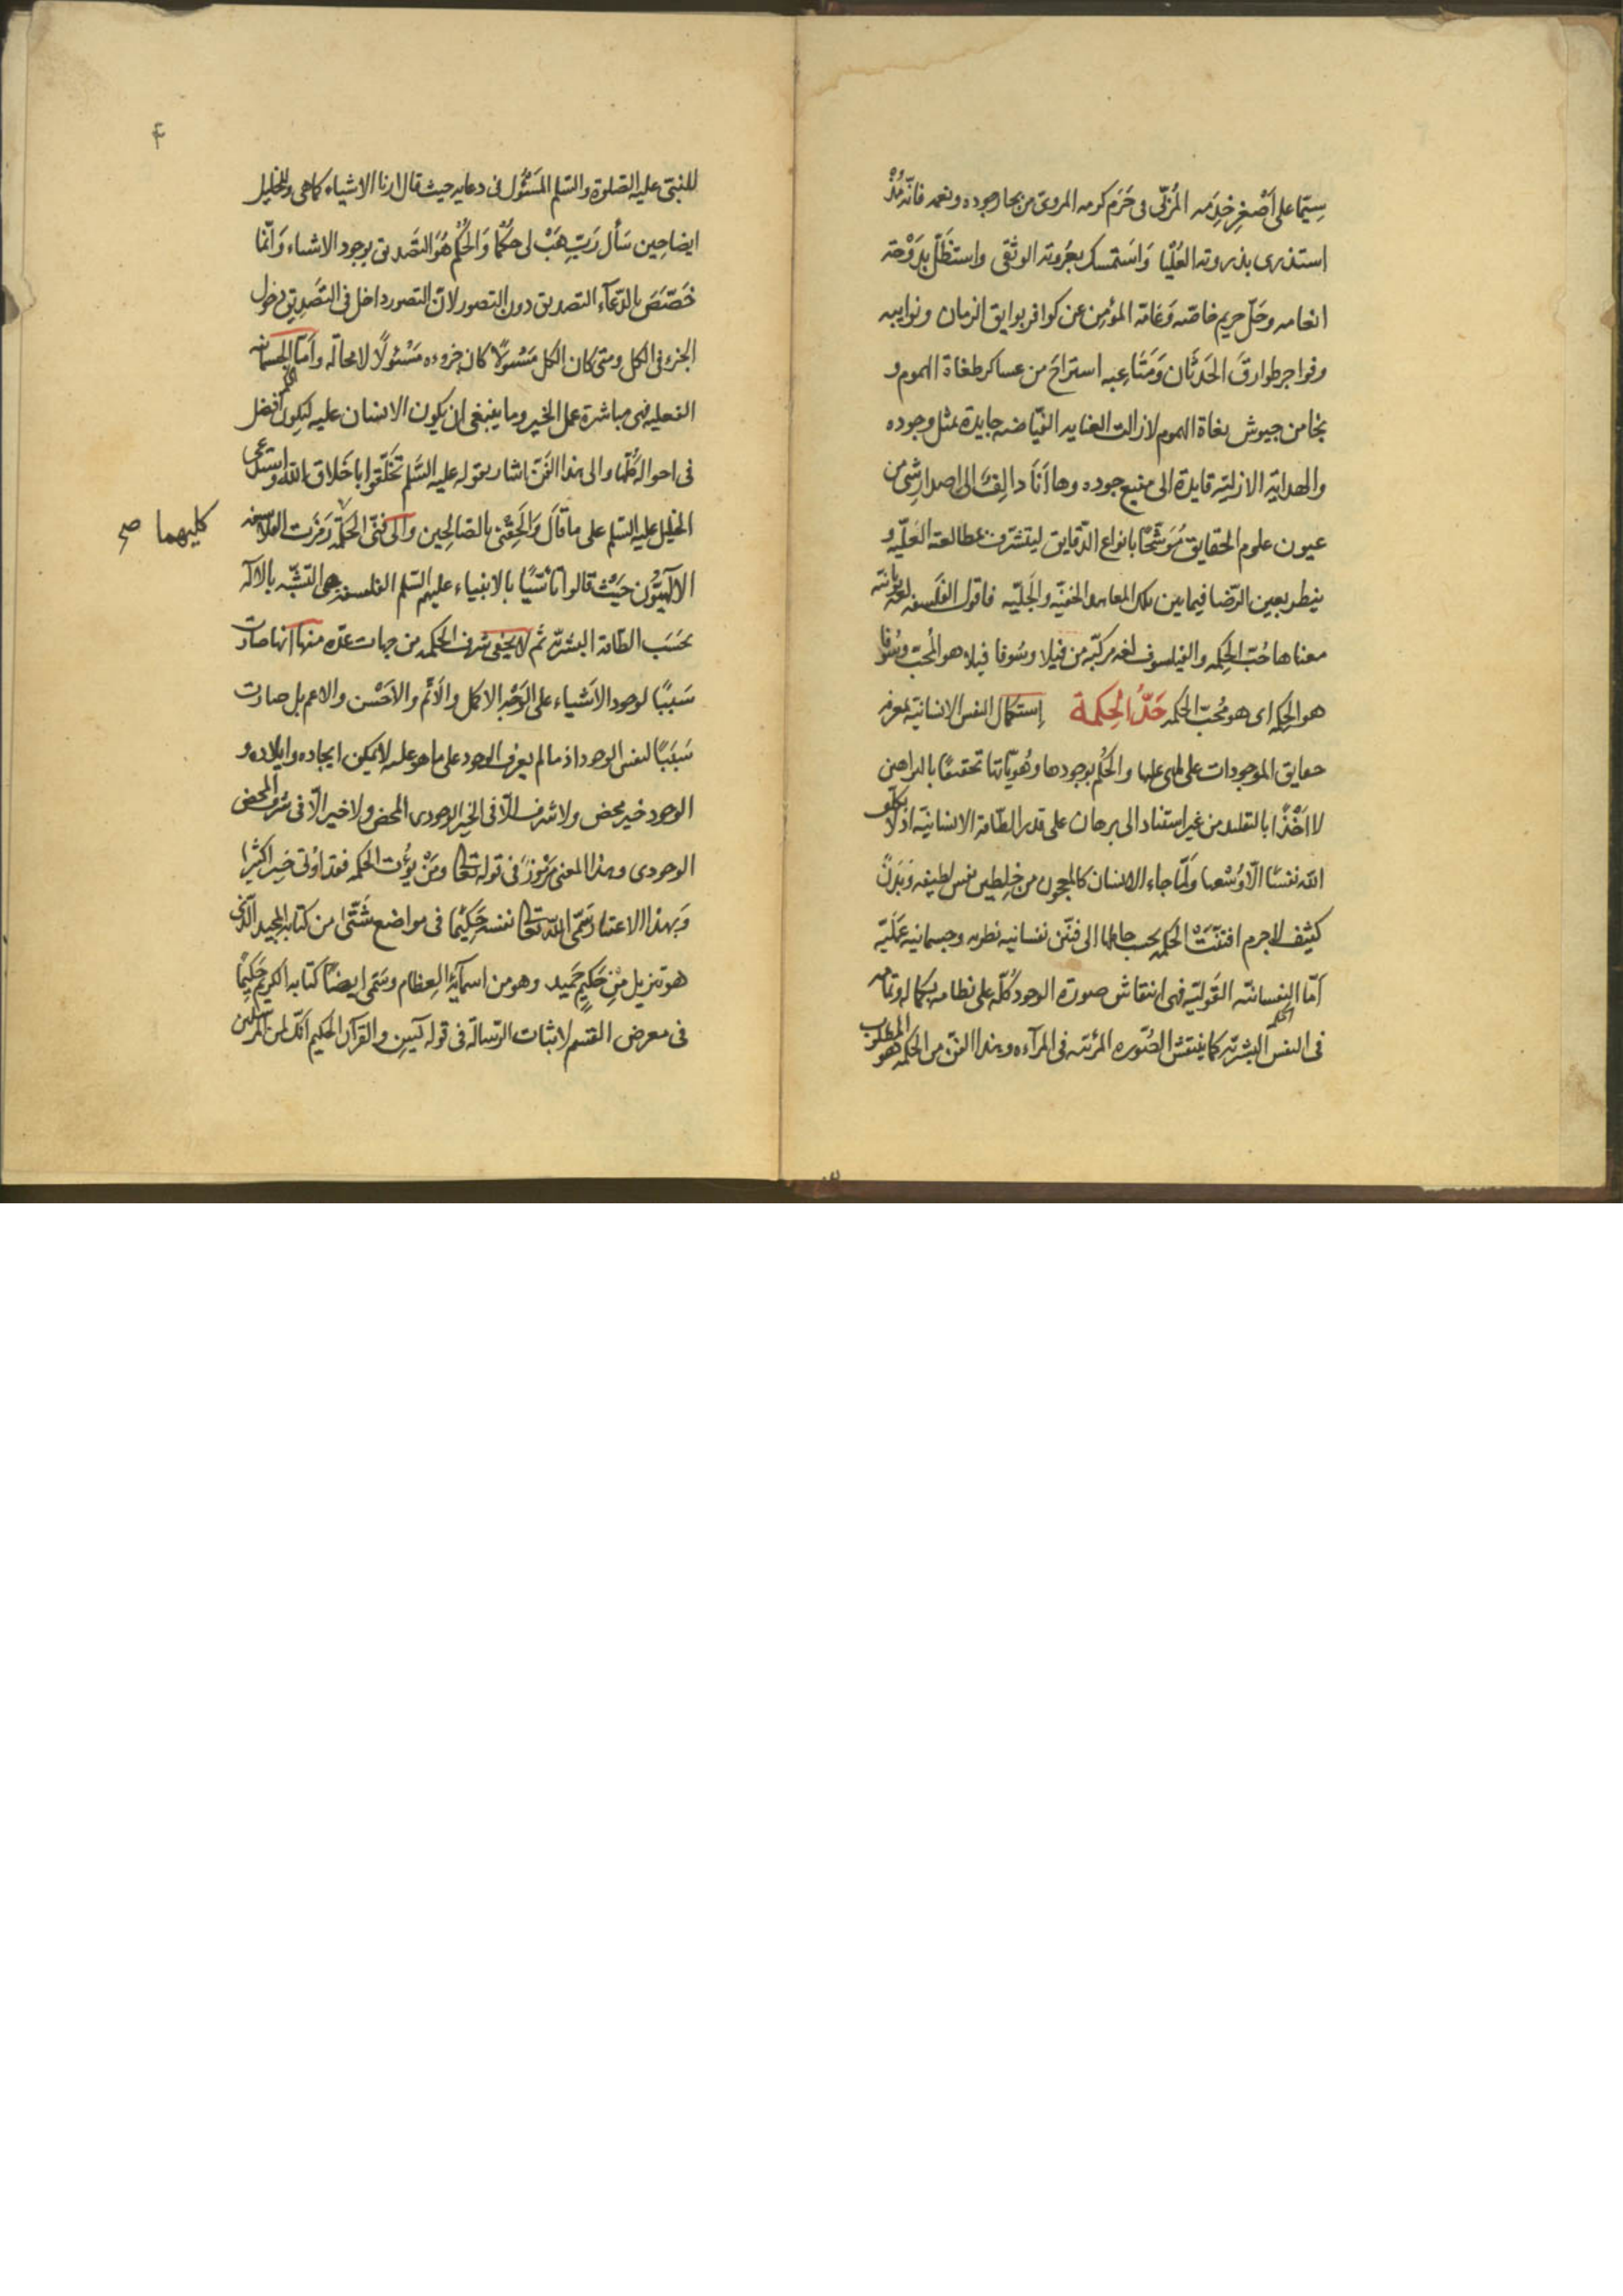 سِيَّما على أَصْغر خِدَمه المُرَبّى فى حَرَم كرمه المروىّ من بحار جوده ونعمه فانّه مُذْ
استذرى بذروته العُلْيا وَاسْتمسك بعُروته الوثْقى واستظلّ بِدَوْحة
انعامه وحَلّ حريم خاصّته وَعَامّته المؤمن عن كوافر بوايق الزمان ونوايبه
وفواجر طوارق الحَدَثَان وَمَتَاعبه استراحَ من عساكر طغاة الهموم و
نجا من جيوش بغاة الهموم لا زالت العنايه الفيّاضه جايدة بمثل وجوده
والهداية الازليّة قايدة الى منبع جوده وها أَنَا دالفٌ الى اصدار شئ من
عيون علوم الحقايق مُوَشّحًا بانواع الدّقايق ليتشرّف بمطالعته العليّه و
ينظر بعين الرّضا فيما بين تلك المعاهد الخفيّه والجَليّه فاقول الفلسفه لغة يونانيّة
معناها حُبّ الحِكمه والفيلسوف لغه مركّبه من فيلا وسُوفا فيلا هو المُحبّ وسُوفا
هو الحكمه اى هو مُحبّ الحكمه حَدُّ الحِكمة إستكمال النفس الانسانية بمعرفه
حقايق الموجودات على ما هى عليها والحُكْم بوجودها وهُويّاتها تحقيقًا بالبراهين
لا اَخْذًا بالتقليد من غير استناد الى برهان على قدر الطّاقة الانسانيّة اذ لا يكلّف
الله نفسًا الّا وُسْعها ولَمّا جاء الانسان كالمعجون من خِلطين نفس لطيفه وَبَدَنٌ
كثيف لا جرم افتنّتْ الحكمه بحسب حالها الى فنّين نفسانيه نظريه وجسمانيه عَمَليّه
أمّا النفسانيّه القَوليّه فهى انتقاش صورة الوجود كلّه على نظامه بكماله وتمامه
فى النفس البشريّه كما ينتقش الصّوره المرئيه فى المرآءه وهذا الفنّ من الحكمه هو المطلوب
٤
للنبىّ عليه الصّلوة والسّلم المَسْئُول فى دعايه حيث قال ارنا الاشياء كما هى وللخليل
ايضا حين سَأل رَبِّ هَبْ لى حكمًا وَالحُكْم هُوَ التصديق بوجود الاشياء وَانّما
خَصّصَ بالدّعآء التصديق دون التصور لانّ التصور داخل فى التصديق دخول
الجزء فى الكل ومتى كان الكل مَسْئولًا كان جزوءه مَسْئولًا لا محاله وأَمّا الجسمانيه
الفعليه فهى مباشرة عمل الخير وما ينبغى ان يكون الانسان عليه ليكون افضل
فى احواله كلّها والى هذا الفنّ اشار بقوله عليه السّلم تَخَلّقوا باخلاق الله واستدعى
الخليل عليه السّلم على ما قَالَ وَالْحِقْنى بالصّالحين وآلى فنّى الحكمة رَمَزت الفلاسفه
كليهما صح
الالهيّون حَيْثُ قالوا تأسّيًا بالانبياء عليهم السّلم الفلسفه هى التشبّه بالاله
بحَسَب الطّاقة البشريّه ثم لا يخفى شرف الحكمه من جهات عدّه منها انها صارت
سَبَبًا لوجود الاشياء على الوَجْه الاكمل والاَتَمّ والاَحْسن والاعم بل صارت
سَبَبًا لنفس الوجود اذ ما لم يعرف الوجود على ما هو عليه لا يمكن ايجاده وايلاده و
الوجود خير محض ولا شرف الّا فى الخير الوجودى المحض ولا خير الّا فى شرف المحض
الوجودى وهذا المعنى مرموز فى قوله تعالى ومَنْ يُؤت الحكمه فقد اوتى خيرا كثيرا
وَبهذا الاعتبار سَمّى الله تعالى نفسه حَكِيمًا فى مواضع شَتّى من كتابه المجيد الّذى
هو تنزيل مِنْ حَكيمٍ حَميد وهو من اسمآئه العِظام وسَمّى ايضًا كتابه الكريم حَكيمًا
فى معرض القسم لاثبات الرّسالة فى قوله يس والقرآن الحكيم انّك لمن المرسلين